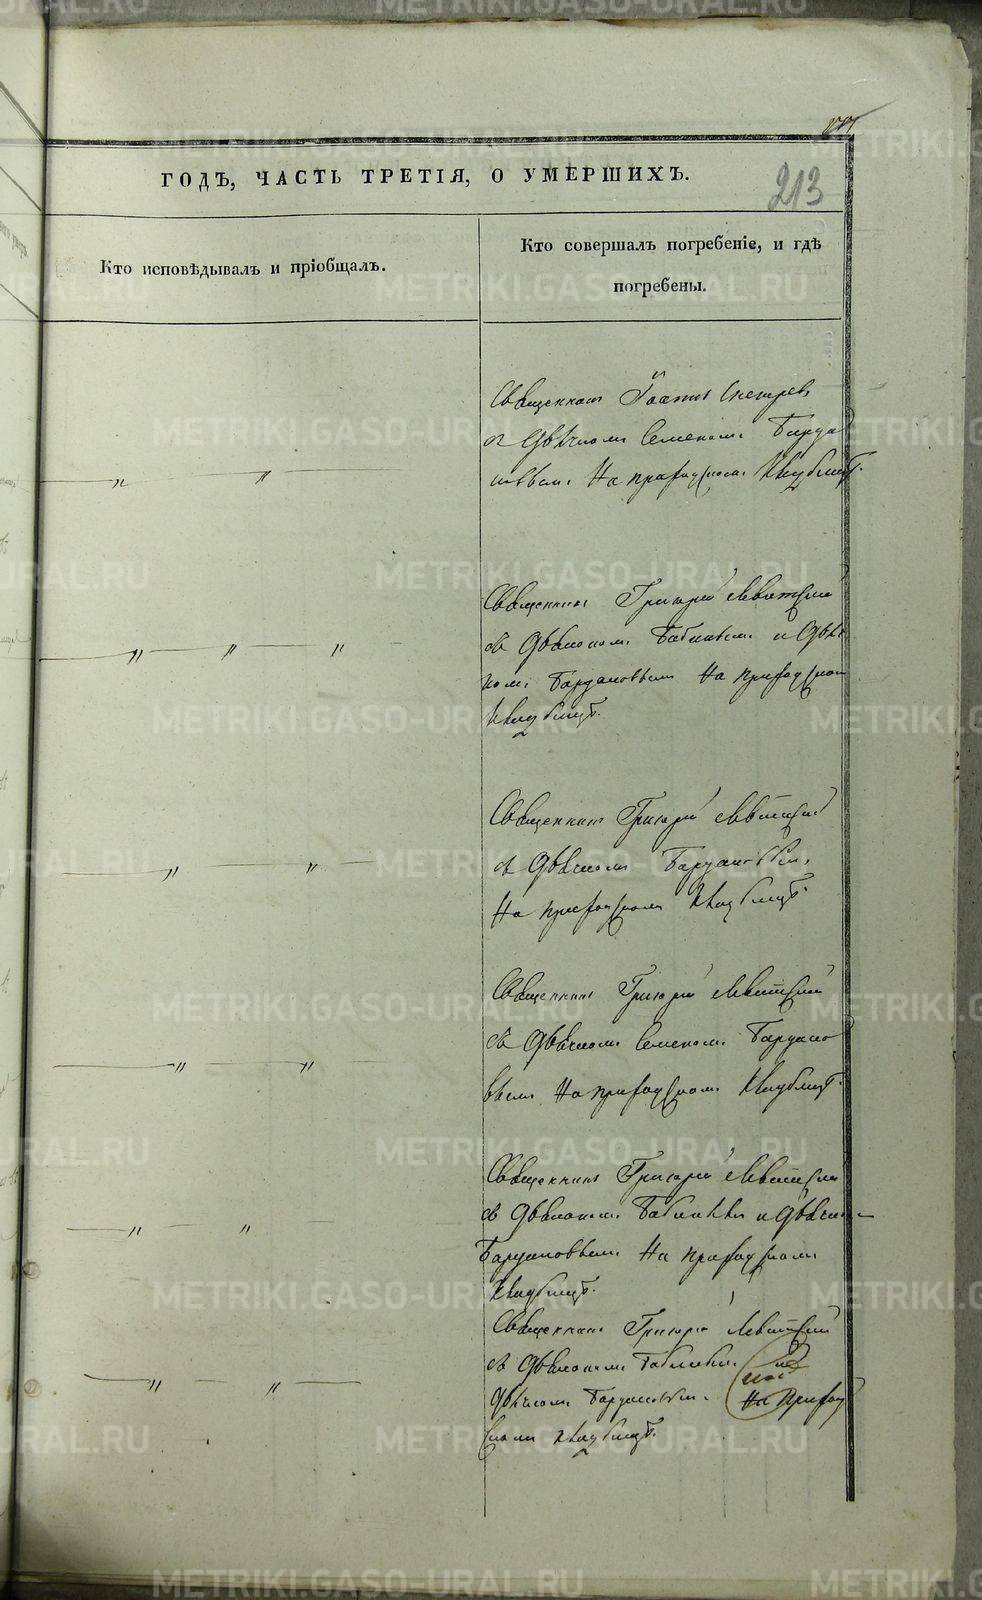 213
ГОДЪ, ЧАСТЬ ТРЕТІЯ, О УМЕРШИХЪ.
Кто исповѣдывалъ и пріобщалъ.
Кто совершалъ погребеніе, и гдѣ
погребены.
Священникъ Іоаннъ
съ Дьячкомъ Семеномъ Бардано
вымъ На приходскомъ Кладбищѣ.
Священникъ Григорій Левитскій
съ Дьякономъ Бабиновымъ и Дьяч
комъ Бардановымъ На приходскомъ
Кладбищѣ.
Священникъ Григорій Левитскій
съ Дьячкомъ Бардановымъ,
На приходскомъ Кладбищѣ.
Священникъ Григорій Левитскій
съ Дьячкомъ Семеномъ Бардано
вымъ На приходскомъ Кладбищѣ.
Священникъ Григорій Левитскій
съ Дьякономъ Бабиновымъ и Дьячкомъ
Бардановымъ На приходскомъ
Кладбищѣ.
Священникъ Григорій Левитскій
съ Дьякономъ Бабиновымъ и
Дьячкомъ Бардановымъ На приход
скомъ Кладбищѣ.
METRIKI.GASO-URAL.RU